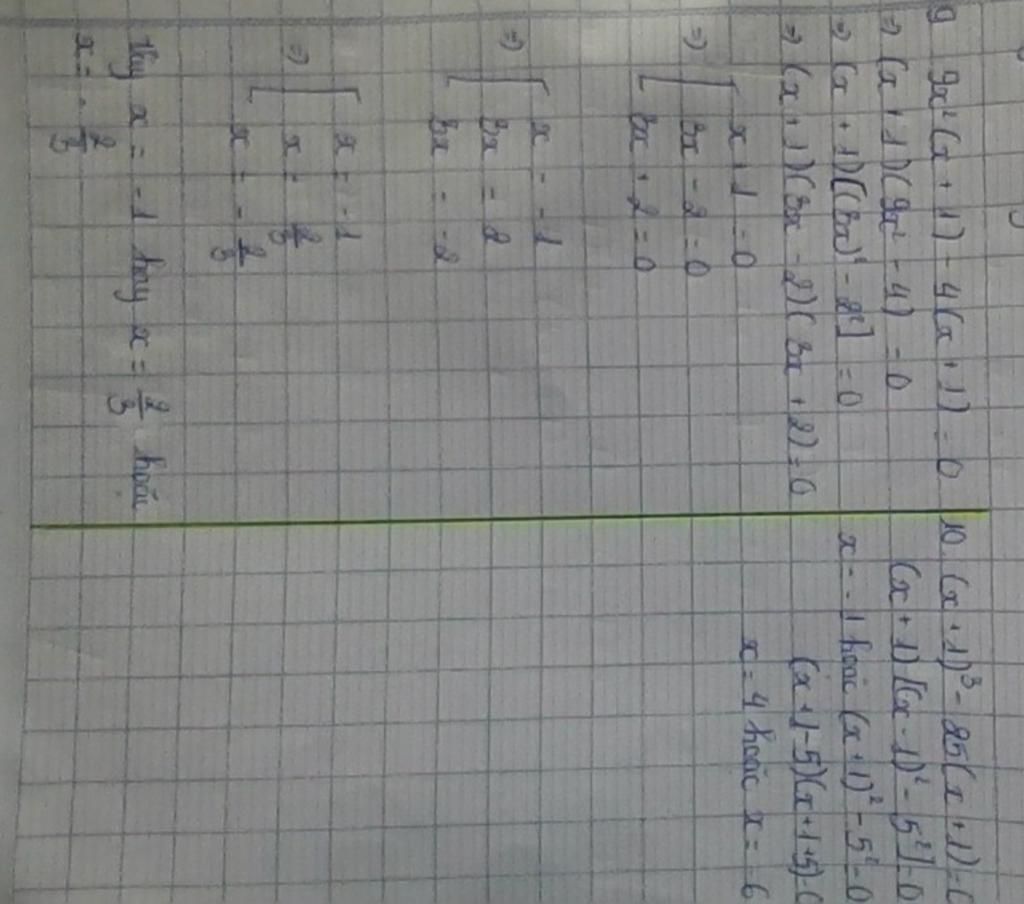 9 9x²(x + 1) - 4(x + 1) = 0
⇒ (x + 1)(9x² - 4) = 0
⇒ (x + 1)[(3x)² - 2²] = 0
⇒ (x + 1)(3x - 2)(3x + 2) = 0
⇒ [ x + 1 = 0
3x - 2 = 0
3x + 2 = 0
⇒ [ x = -1
3x = 2
3x = -2
⇒ [ x = -1
x = 2/3
x = -2/3
Vậy x = -1 hay x = 2/3 hoặc
x = -2/3
10. (x + 1)³ - 25(x + 1) = 0
(x + 1)[(x - 1)² - 5²] = 0
x = -1 hoặc (x + 1)² - 5² = 0
(x + 1 - 5)(x + 1 + 5) = 0
x = 4 hoặc x = -6